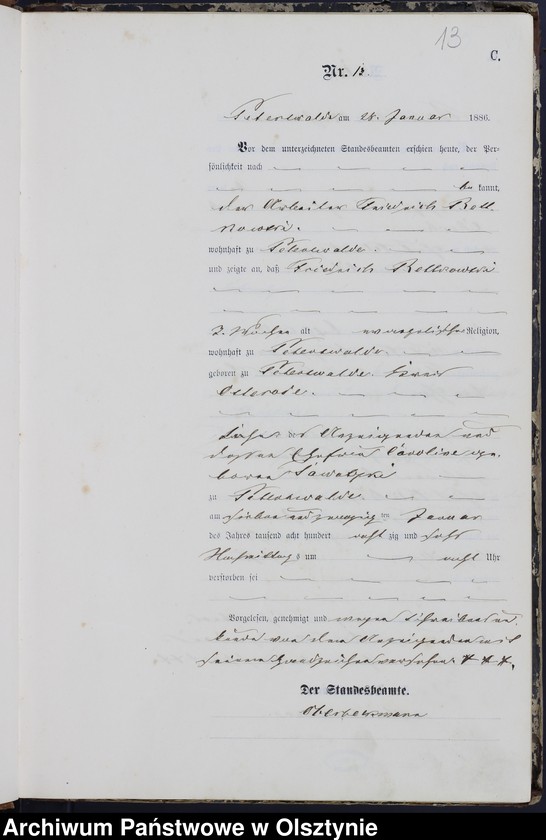 13
C.
Nr. 13.
Peterswalde am 28. Januar 1886.
Vor dem unterzeichneten Standesbeamten erschien heute, der Per-
sönlichkeit nach
be kannt,
der Arbeiter Friedrich
wohnhaft zu Peterswalde.
und zeigte an, daß Friedrich
Wochen alt evangelischer Religion,
wohnhaft zu Peterswalde.
geboren zu Peterswalde. Kreis
Osterode.
Sohn des Anzeigenden und
dessen Ehefrau Caroline ge-
borne
zu Peterswalde.
am sieben und zwanzig ten Januar
des Jahres tausend acht hundert acht zig und sechs
Nachmittags um acht Uhr
verstorben sei
Vorgelesen, genehmigt und wegen Schreibensun-
kunde von dem Anzeigenden mit
seinem Handzeichen versehen. + + +.
Der Standesbeamte.
Archiwum Państwowe w Olsztynie